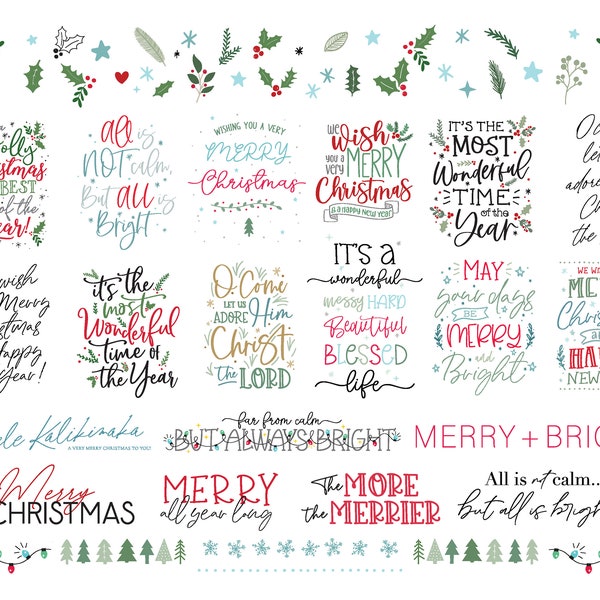 olly
istmas
BEST
of the
ear!
All is
NOT calm,
But all is
Bright
WISHING YOU A VERY
MERRY
Christmas
We
Wish
you a very
MERRY
Christmas
& a HAPPY NEW YEAR!
IT'S THE
MOST
Wonderful
TIME
of the
Year
O c
le
ado
C
the
wish
Merry
istmas
Happy
Year!
it's the
most
Wonderful
time of
the Year
O Come
LET US
ADORE Him
Christ
the LORD
IT'S A
wonderful
messy HARD
Beautiful
BLESSED
life
MAY
your days
BE
MERRY
and
Bright
WE W
ME
Christ
and
HA
NEW
ele Kalikimaka
A VERY MERRY CHRISTMAS TO YOU!
far from calm
BUT ALWAYS BRIGHT
MERRY + BRIG
Merry
CHRISTMAS
MERRY
all year long
The MORE
the MERRIER
All is not calm...
but all is brigh